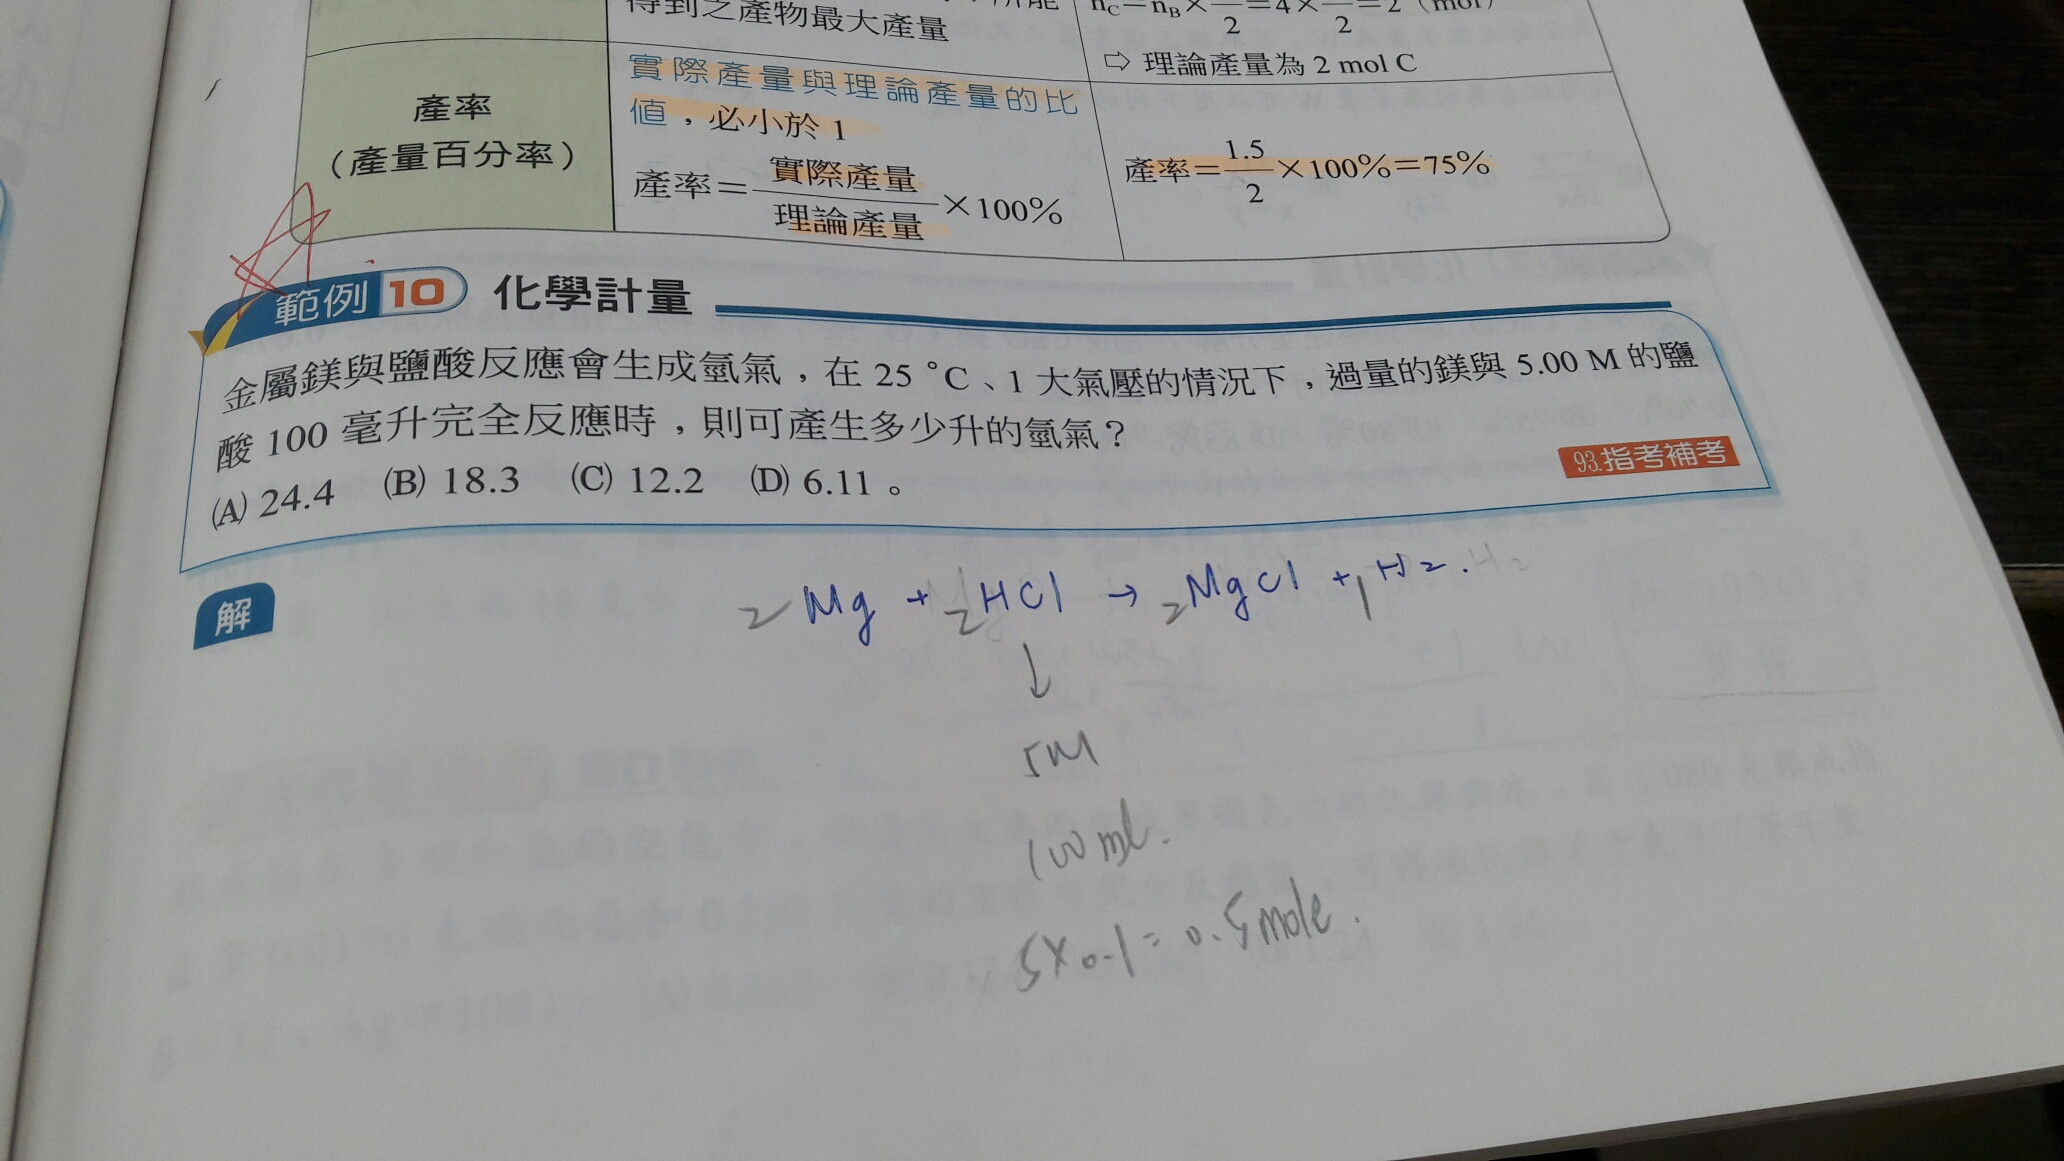 得到之產物最大產量
n_C=n_B×—/2=4×—/2=2（mol）
⇨ 理論產量為 2 mol C
產率
（產量百分率）
實際產量與理論產量的比
值，必小於 1
產率=實際產量/理論產量×100%
產率=1.5/2×100%=75%
範例 10 化學計量
金屬鎂與鹽酸反應會生成氫氣，在 25 °C、1 大氣壓的情況下，過量的鎂與 5.00 M 的鹽
酸 100 毫升完全反應時，則可產生多少升的氫氣？
(A) 24.4 (B) 18.3 (C) 12.2 (D) 6.11 。
93.指考補考
解
2Mg + 2HCl → 2MgCl + 1H2.
↓
5M
100ml.
5×0.1=0.5mole.